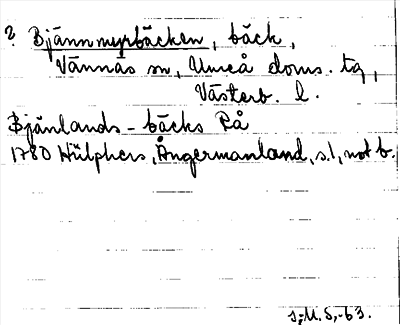 ? Bjännmyrbäcken, bäck,
Vännäs sn, Umeå doms. tg,
Västerb. l.
Bjänlands-bäcks Rå
1780 Hülphers, Ångermanland, s.1, not b.
J.M.S.-63.